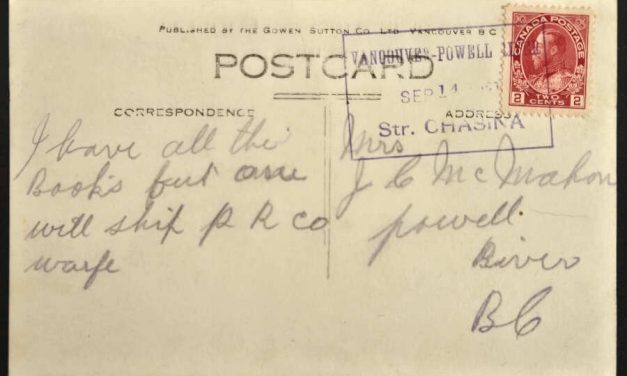 PUBLISHED BY THE GOWEN SUTTON CO. LTD. VANCOUVER B.C.
POSTCARD
VANCOUVER-POWELL
SEP 14
Str. CHASINA
CANADA POSTAGE
2 TWO CENTS 2
CORRESPONDENCE
ADDRESS
I have all the
Books but one
will ship P R Co
warfe
Mrs
J C McMahon
powell
River
BC